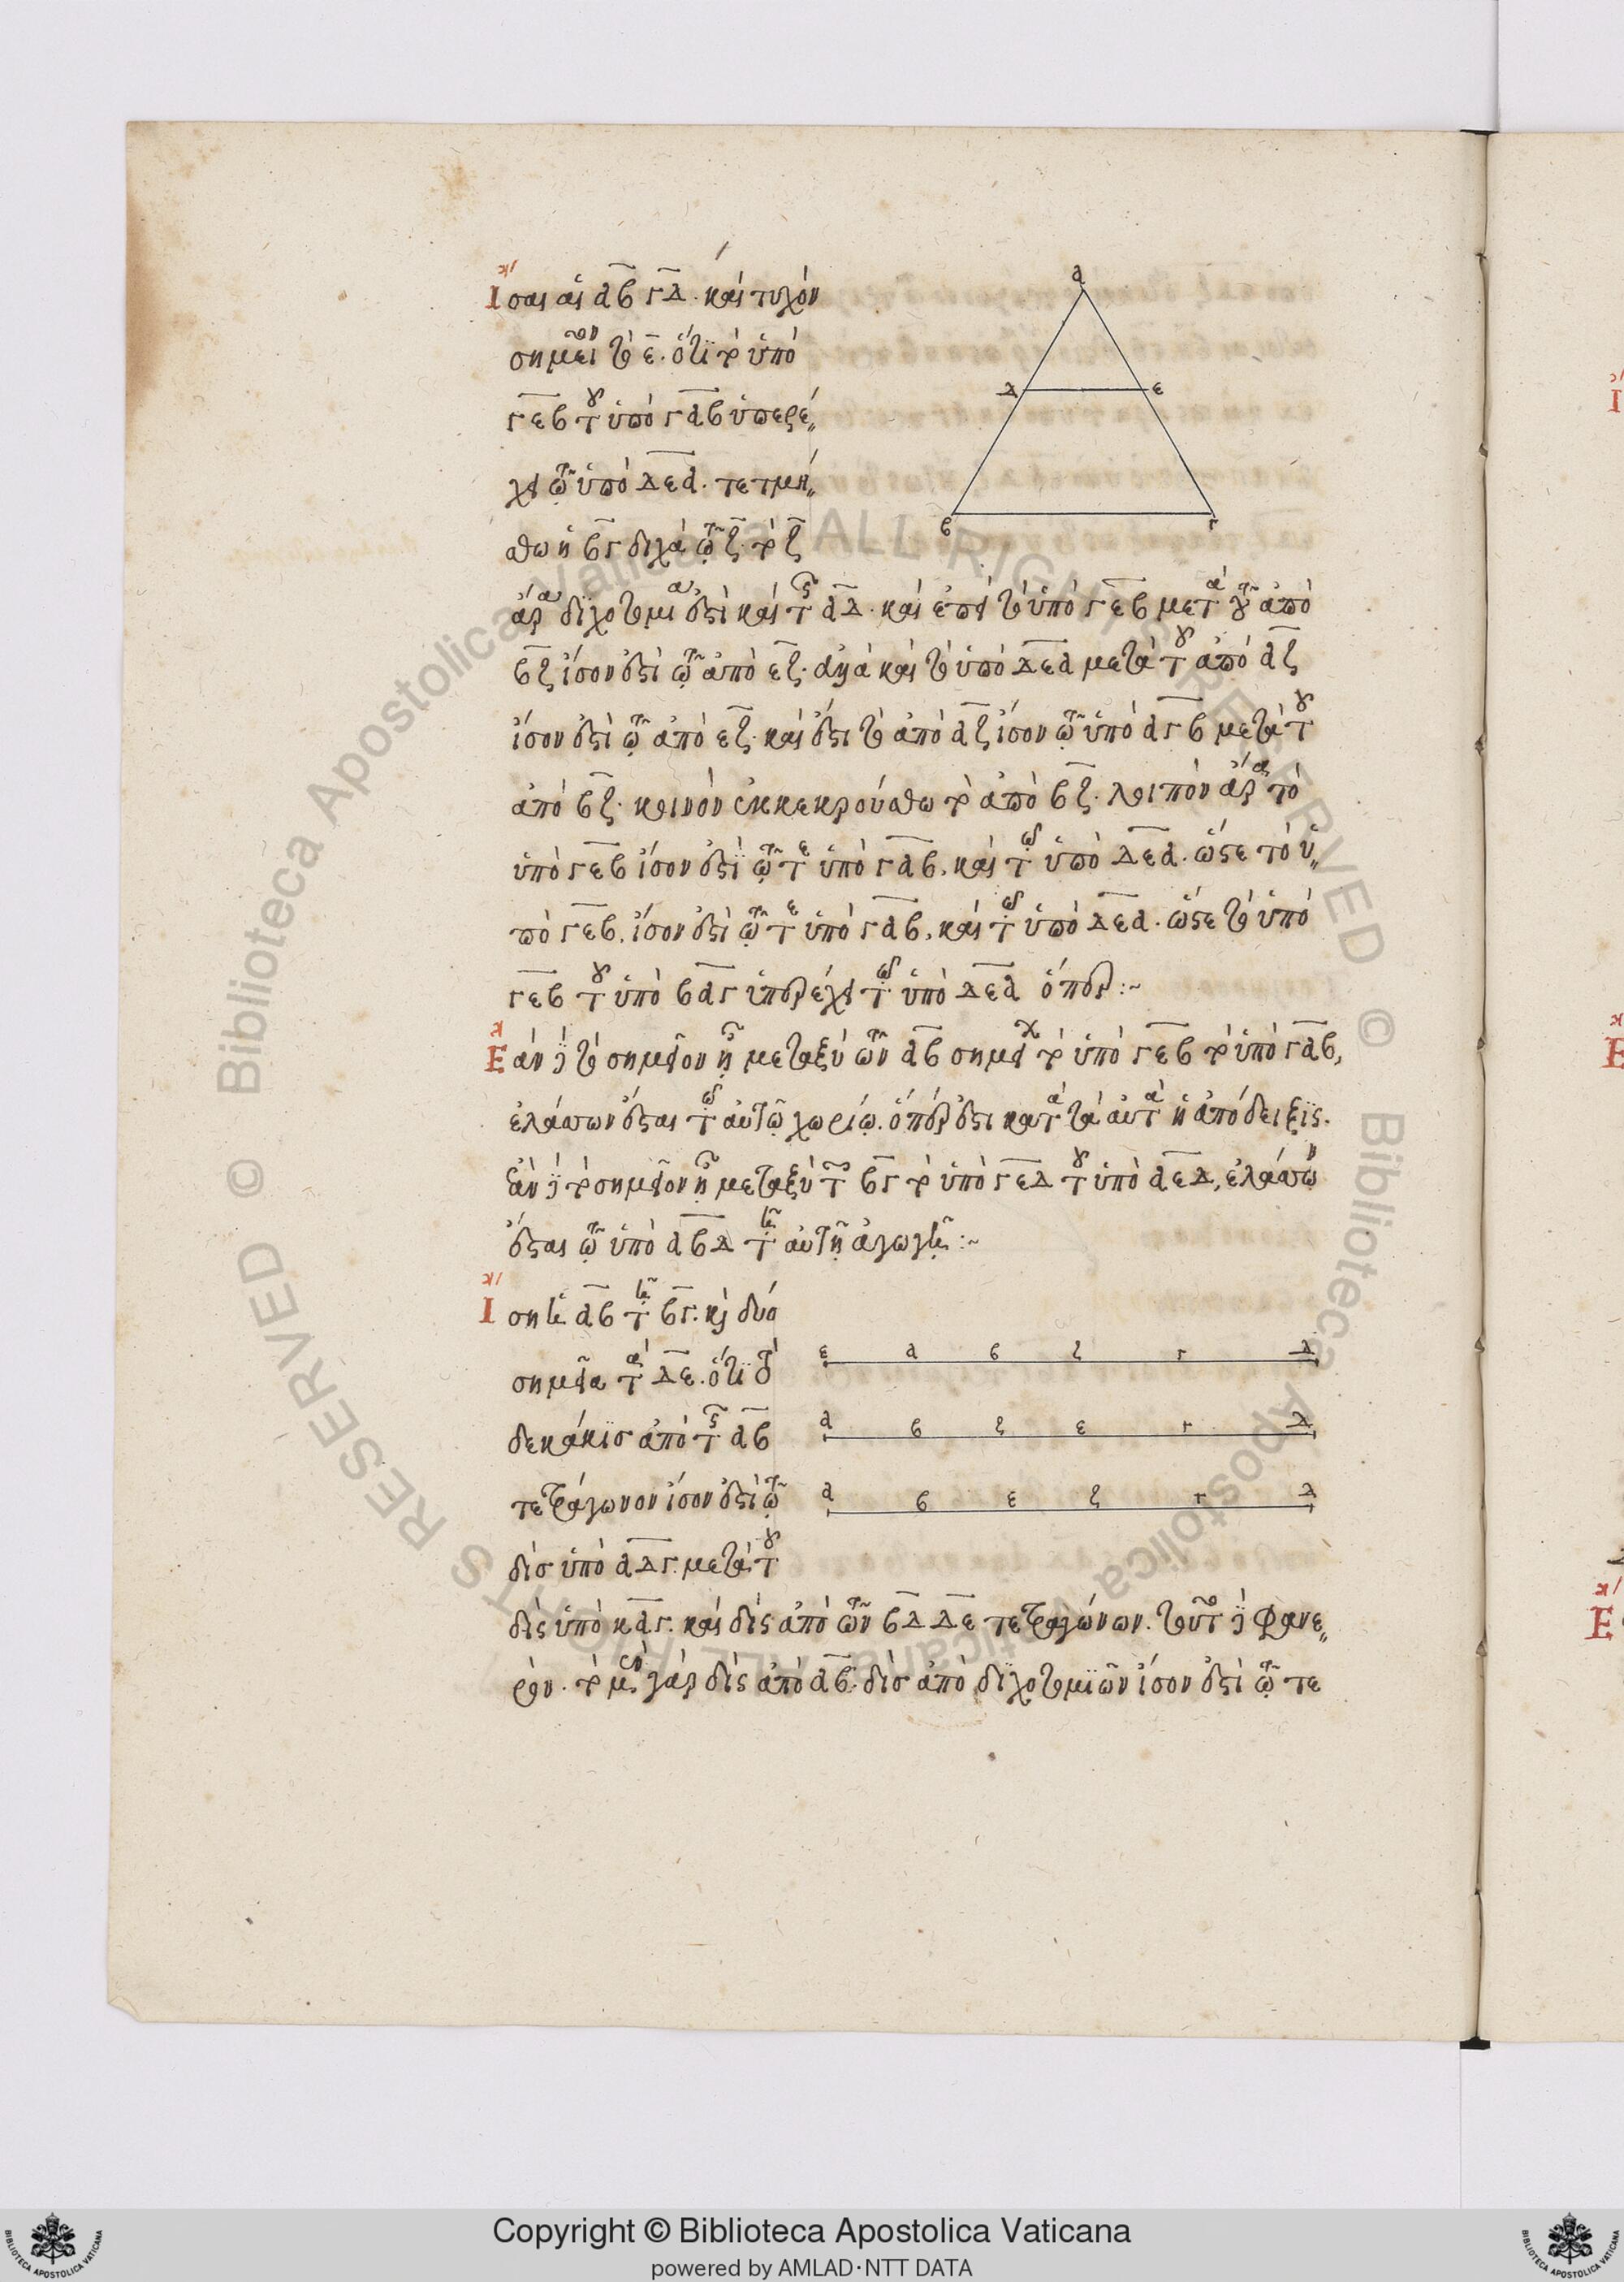 Ἴσαι αἱ ΑΒ ΓΔ. καὶ τυχὸν
σημεῖον τὸ Ε. ὅτι τὸ ὑπὸ
ΓΕΒ τοῦ ὑπὸ ΓΑΒ ὑπερέ
χει τῷ ὑπὸ ΔΕΑ. τετμή
σθω ἡ ΒΓ δίχα τῷ Ζ. τὸ Ζ
ἄρα διχοτομία ἐστὶ καὶ τῆς ΑΔ. καὶ ἐπεὶ τὸ ὑπὸ ΓΕΒ μετὰ τοῦ ἀπὸ
ΒΖ ἴσον ἐστὶ τῷ ἀπὸ ΕΖ. ἀλλὰ καὶ τὸ ὑπὸ ΔΕΑ μετὰ τοῦ ἀπὸ ΑΖ
ἴσον ἐστὶ τῷ ἀπὸ ΕΖ. καὶ ἔστι τὸ ἀπὸ ΑΖ ἴσον τῷ ὑπὸ ΑΓΒ μετὰ τοῦ
ἀπὸ ΒΖ. κοινὸν ἐκκεκρούσθω τὸ ἀπὸ ΒΖ. λοιπὸν ἄρα τὸ
ὑπὸ ΓΕΒ ἴσον ἐστὶ τῷ τε ὑπὸ ΓΑΒ, καὶ τῷ ὑπὸ ΔΕΑ. ὥστε τὸ ὑ
πὸ ΓΕΒ, ἴσον ἐστὶ τῷ τε ὑπὸ ΓΑΒ, καὶ τῷ ὑπὸ ΔΕΑ. ὥστε τὸ ὑπὸ
ΓΕΒ τοῦ ὑπὸ ΒΑΓ ὑπερέχει τῷ ὑπὸ ΔΕΑ ὅπερ:~
Ἐὰν δὲ τὸ σημεῖον ᾖ μεταξὺ τῶν ΑΒ σημείων τὸ ὑπὸ ΓΕΒ τοῦ ὑπὸ ΓΑΒ,
ἔλασσον ἔσται τῷ αὐτῷ χωρίῳ. οὗπέρ ἐστι κατὰ τὰ αὐτὰ ἡ ἀπόδειξις.
ἐὰν δὲ τὸ σημεῖον ᾖ μεταξὺ τῶν ΒΓ τὸ ὑπὸ ΓΕΔ τοῦ ὑπὸ ΑΕΔ, ἔλασσον
ἔσται τῷ ὑπὸ ΑΒΔ τῇ αὐτῇ ἀγωγῇ:~
Ἴση ἡ ΑΒ τῇ ΒΓ. καὶ δύο
σημεῖα τὰ ΔΕ. ὅτι τὸ
δεκάκις ἀπὸ τῆς ΑΒ
τετράγωνον ἴσον ἐστὶ τῷ
δὶς ὑπὸ ΑΔΓ. μετὰ τοῦ
δὶς ὑπὸ ΚΑΓ. καὶ δὶς ἀπὸ τῶν ΒΔ ΔΕ τετραγώνων. τοῦτο δὲ φανε
ρόν. τὸ μὲν γὰρ δὶς ἀπὸ ΑΒ. δὶς ἀπὸ διχοτομιῶν ἴσον ἐστὶ τῷ τε
Α
Δ Ε
Β Γ
Ε Α Β Ζ Γ Δ
Α Β Ζ Ε Γ Δ
Α Β Ε Ζ Γ Δ
© Biblioteca Apostolica Vaticana ALL RIGHTS RESERVED
Copyright © Biblioteca Apostolica Vaticana
powered by AMLAD·NTT DATA